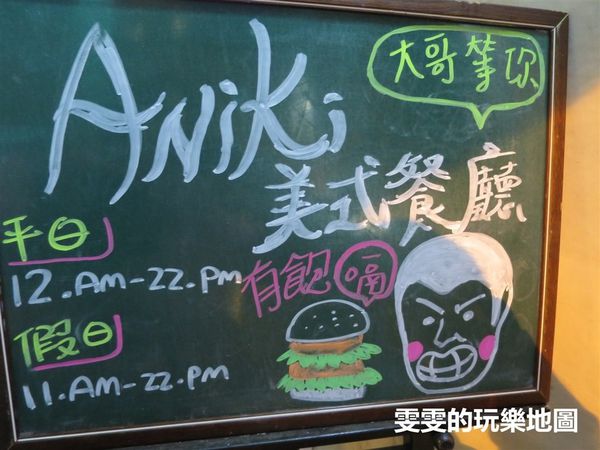 ANiKi
大哥等你
美式餐廳
平日
12.AM-22.PM
有飽嗝
假日
11.AM-22.PM
雯雯的玩樂地圖